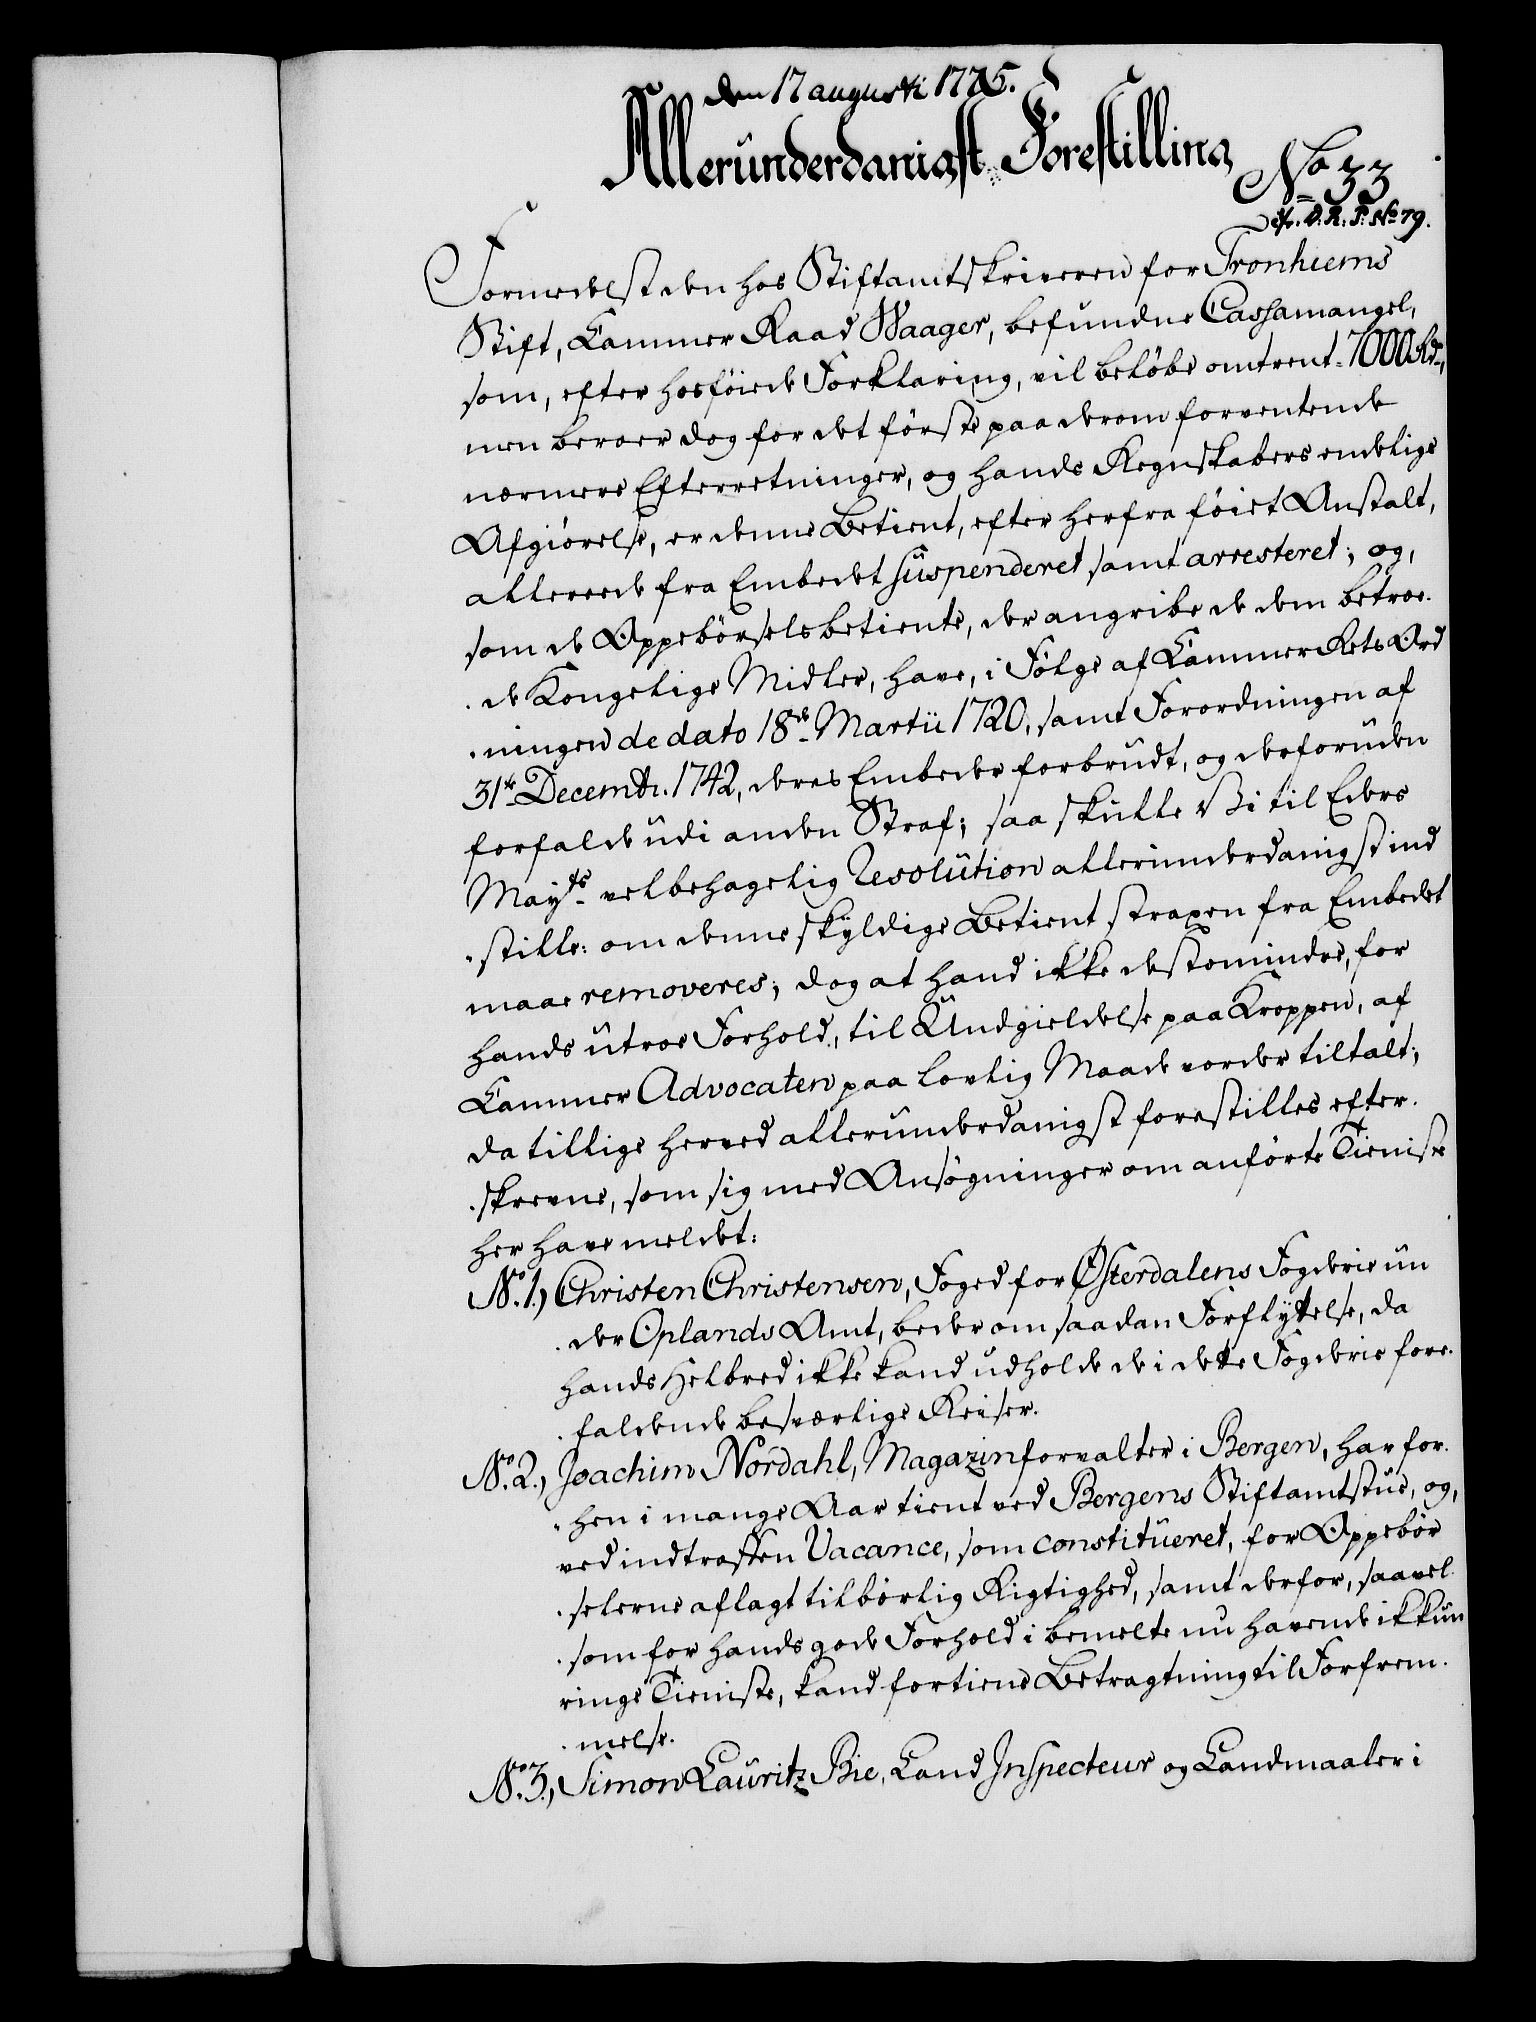 den 17 augusti 1775.
Allerunderdanigst Forestilling
No 33
N. R. P. No 79.
Formedelst den hos Stiftamtskriveren for Tronhiems
Stift, Cammer Raad Waager, befundne Cassamangel,
som, efter hosföiede Forklaring, vil beløbe omtrent 7000 Rdr,
men beroer dog for det förste paa derom forventende
nærmere Efterretninger, og hands Regnskabers endelige
Afgiörelse, er denne Betient, efter herfra föiet Anstalt,
allereede fra Embedet suspenderet samt arresteret; og,
som de Oppebörselsbetiente, der angribe de dem betroe-
de Kongelige Midler, have, i Fölge af Cammer Rets Ord
ningen de dato 18de Martii 1720, samt Forordningen af
31te Decembr. 1742, deres Embeder forbrudt, og desforuden
forfalde udi anden Straf; saa skulle Vi til Eders
Mayts velbehagelig Resolution allerunderdanigst ind
stille: om denne skyldige Betient straxen fra Embedet
maae removeres; dog at hand ikke destomindre, for
hands utroe Forhold, til Undgieldelse paa Kroppen, af
Cammer Advocaten paa lovlig Maade vorder tiltalt;
da tillige herved allerunderdanigst forestilles efter-
skrevne, som sig med Ansögninger om anförte Tieniste
her have meldet:
No. 1, Christen Christensen, Foged for Østerdalens Fogderie un
der Oplands Amt, beder om saadan Forflyttelse, da
hands Helbred ikke kand udholde de i dette Fogderie fore-
faldende besværlige Reiser.
No. 2, Joachim Nordahl, Magazinforvalter i Bergen, har for-
hen i mange Aar tient ved Bergens Stiftamtstue, og,
ved indtroffen Vacance, som constitueret, for Oppebör
selerne aflagt tilbörlig Rigtighed, samt derfor, saavel
som for hands gode Forhold i bemelte nu havende ikkun
ringe Tieniste, kand fortiene Betragtning til Forfrem-
melse.
No. 3, Simon Lauritz Bie, Land Inspecteur og Landmaaler i